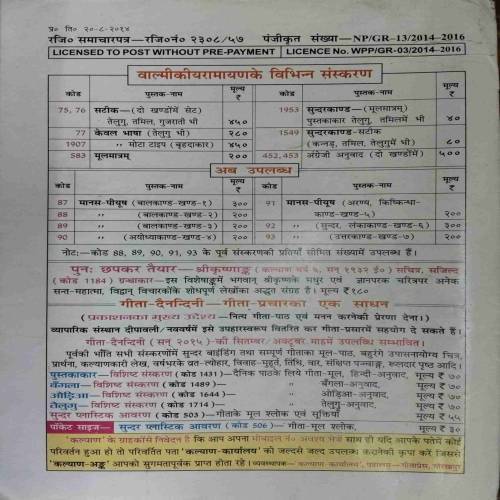 प्र० ति० २०-८-२०१४
रजि० समाचारपत्र—रजि०नं० २३०८/५७ पंजीकृत संख्या—NP/GR-13/2014-2016
LICENSED TO POST WITHOUT PRE-PAYMENT | LICENCE No. WPP/GR-03/2014-2016
वाल्मीकीयरामायणके विभिन्न संस्करण
कोड पुस्तक-नाम मूल्य ₹ कोड पुस्तक-नाम मूल्य ₹
75, 76 सटीक—(दो खण्डोंमें सेट) 1953 सुन्दरकाण्ड—(मूलमात्रम्)
तेलुगु, तमिल, गुजराती भी ४५० पुस्तकाकार तेलुगु, तमिलमें भी ४०
77 केवल भाषा (तेलुगु भी) २८० 1549 सुन्दरकाण्ड-सटीक
1907 " मोटा टाइप (बृहदाकार) ४५० (कन्नड़, तमिल, तेलुगुमें भी) ८०
583 मूलमात्रम् २०० 452,453 अंग्रेजी अनुवाद (दो खण्डोंमें) ५००
अब उपलब्ध
कोड पुस्तक-नाम मूल्य ₹ कोड पुस्तक-नाम मूल्य ₹
87 मानस-पीयूष (बालकाण्ड-खण्ड-१) ३०० 91 मानस-पीयूष (अरण्य, किष्किन्धा-
88 " (बालकाण्ड-खण्ड-२) २०० काण्ड-खण्ड-५) २००
89 " (बालकाण्ड-खण्ड-३) २०० 92 " (सुन्दर, लंकाकाण्ड-खण्ड-६) ३००
90 " (अयोध्याकाण्ड-खण्ड-४) २०० 93 " (उत्तरकाण्ड-खण्ड-७) २००
नोट:—कोड 88, 89, 90, 91, 93 के पूर्व संस्करणकी प्रतियाँ सीमित संख्यामें उपलब्ध हैं।
पुन: छपकर तैयार—श्रीकृष्णाङ्क (कल्याण वर्ष ६, सन् १९३२ ई०) सचित्र, सजिल्द
(कोड 1184) ग्रन्थाकार—इस विशेषाङ्कमें भगवान् श्रीकृष्णके मधुर एवं ज्ञानपरक चरित्रपर अनेक
सन्त-महात्मा, विद्वान् विचारकोंके शोधपूर्ण लेखोंका अद्भुत संग्रह है। मूल्य ₹ १८०
गीता-दैनन्दिनी—गीता-प्रचारका एक साधन
(प्रकाशनका मुख्य उद्देश्य—नित्य गीता-पाठ एवं मनन करनेकी प्रेरणा देना।)
व्यापारिक संस्थान दीपावली/नववर्षमें इसे उपहारस्वरूप वितरित कर गीता-प्रसारमें सहयोग दे सकते हैं।
गीता-दैनन्दिनी (सन् २०१५) की सितम्बर/अक्टूबर माहमें उपलब्ध सम्भावित।
पूर्वकी भाँति सभी संस्करणोंमें सुन्दर बाइंडिंग तथा सम्पूर्ण गीताका मूल-पाठ, बहुरंगे उपासनायोग्य चित्र,
प्रार्थना, कल्याणकारी लेख, वर्षभरके व्रत-त्योहार, विवाह-मुहूर्त, तिथि, वार, संक्षिप्त पञ्चाङ्ग, रूलदार पृष्ठ आदि।
पुस्तकाकार— विशिष्ट संस्करण (कोड 1431)—दैनिक पाठके लिये गीता-मूल, हिन्दी-अनुवाद, मूल्य ₹ ७०
बँगला— विशिष्ट संस्करण (कोड 1489)— " बँगला-अनुवाद, मूल्य ₹ ७०
ओड़िआ— विशिष्ट संस्करण (कोड 1644)— " ओड़िआ-अनुवाद, मूल्य ₹ ७०
तेलुगु— विशिष्ट संस्करण (कोड 1714)— " तेलुगु-अनुवाद, मूल्य ₹ ७०
सुन्दर प्लास्टिक आवरण (कोड 503)—गीताके मूल श्लोक एवं सूक्तियाँ मूल्य ₹ ५५
पॉकेट साइज— सुन्दर प्लास्टिक आवरण (कोड 506)— गीता-मूल श्लोक, मूल्य ₹ ३०
'कल्याण' के ग्राहकोंसे निवेदन है कि आप अपना मोबाइल नं० अवश्य भेजें साथ ही यदि आपके पतेमें कोई
परिवर्तन हुआ हो तो परिवर्तित पता 'कल्याण-कार्यालय' को जल्दसे जल्द उपलब्ध करानेकी कृपा करें जिससे
'कल्याण-अङ्क' आपको सुगमतापूर्वक प्राप्त होता रहे। व्यवस्थापक—'कल्याण'-कार्यालय, पत्रालय—गीताप्रेस, गोरखपुर